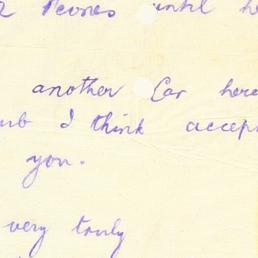 until he
another Car here
I think accep
you.
very truly